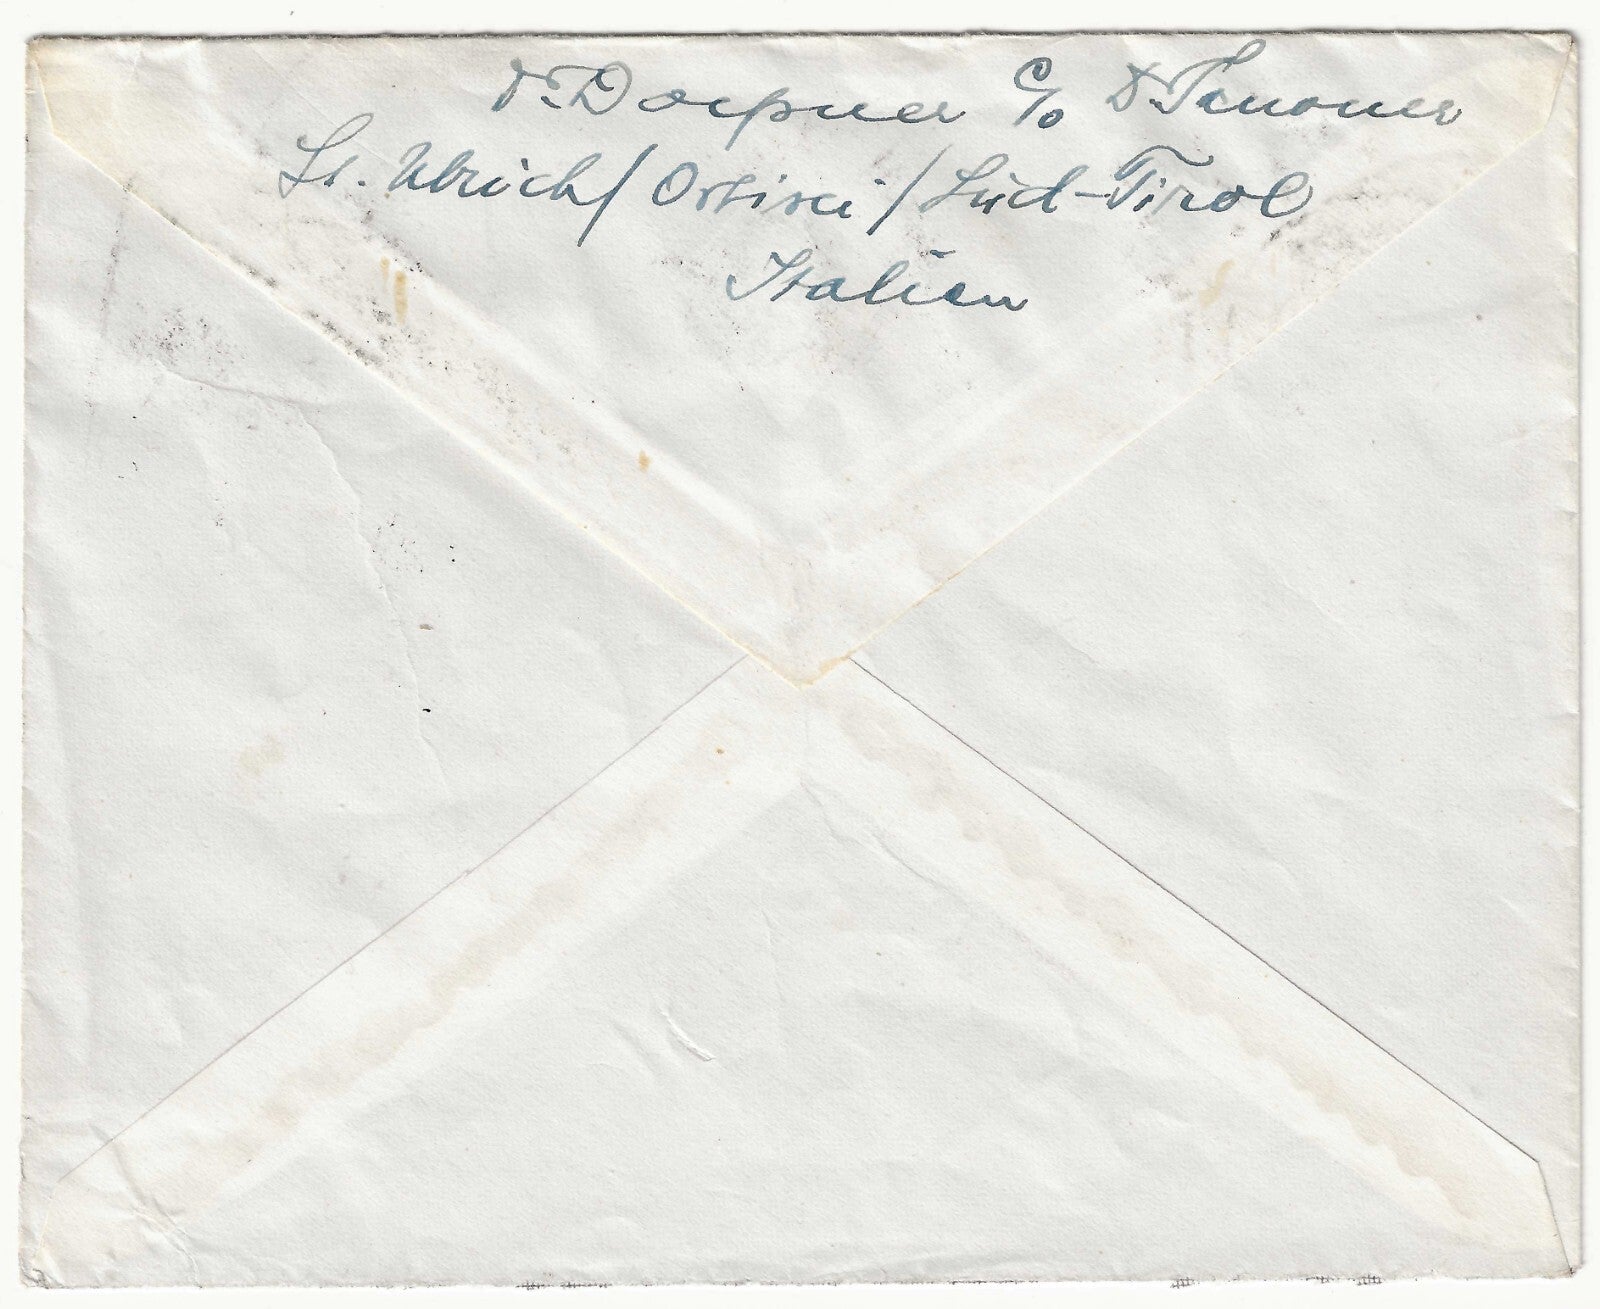 Dr. Doepner c/o Dr. Senoner
St. Ulrich/Ortisei/Süd-Tirol
Italien